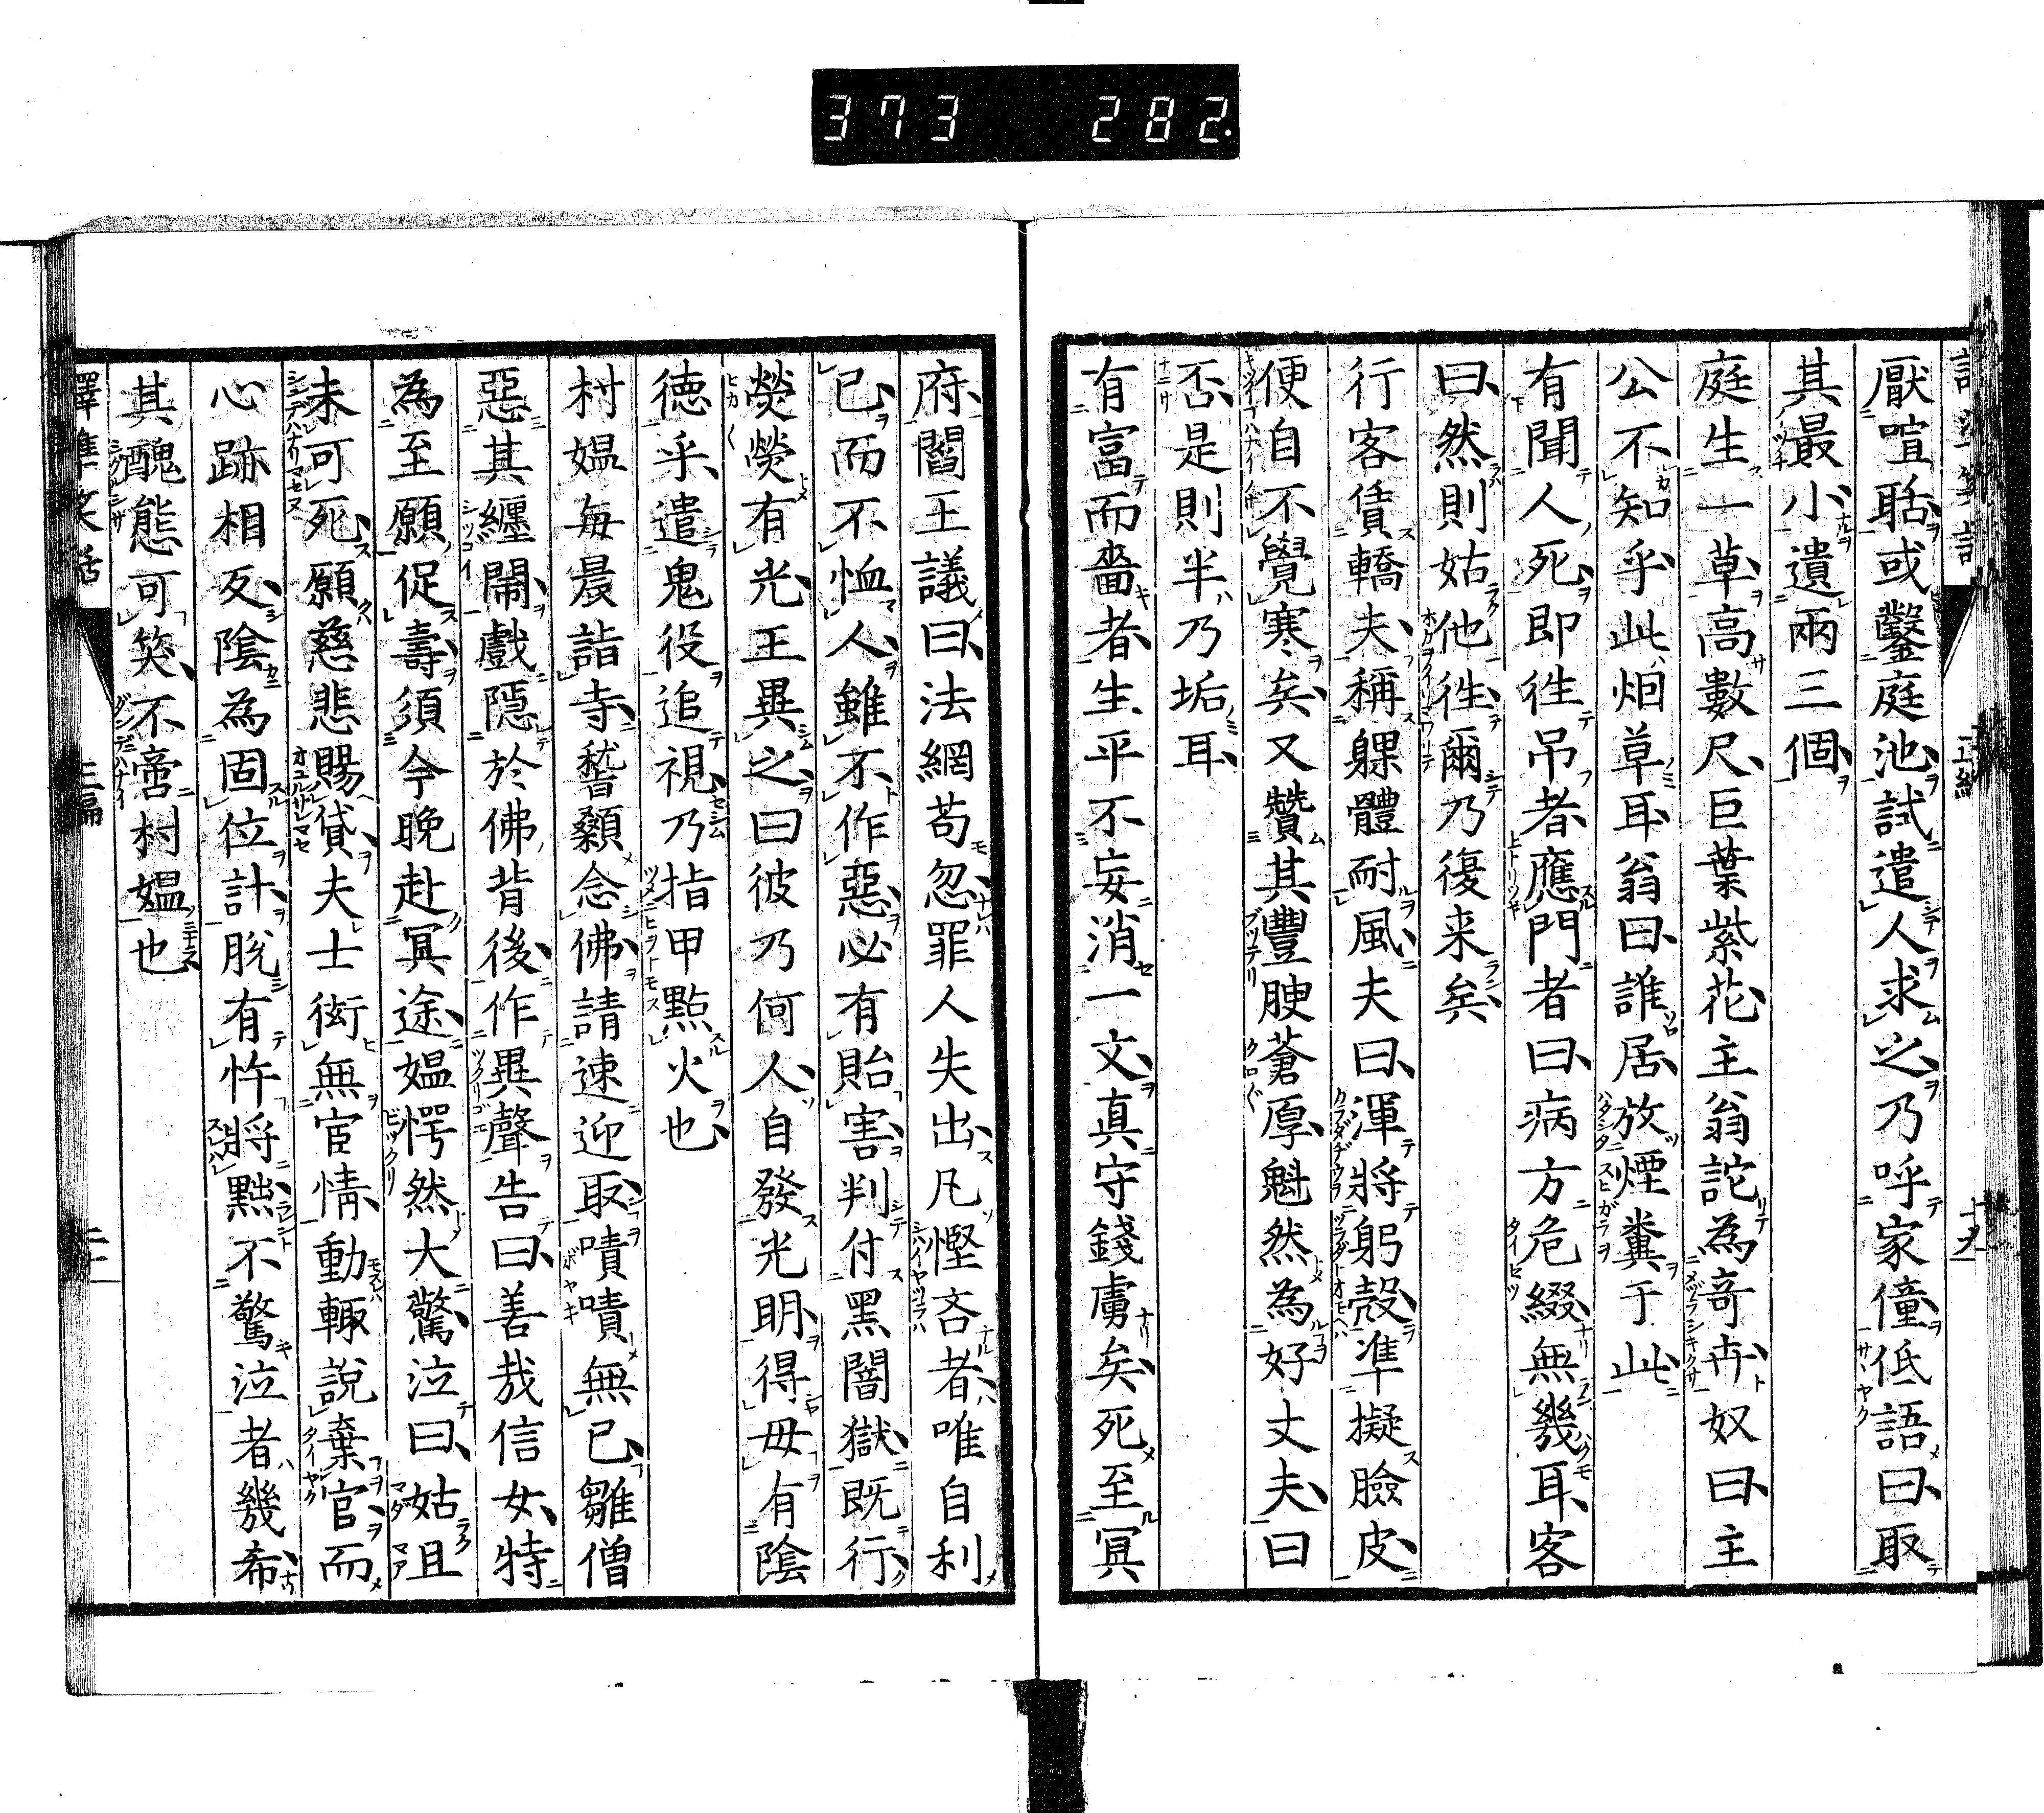 373 282.
厭喧聒或鑿庭池試遣人求之乃呼家僮低語曰取
其最小遺兩三個
庭生一草高數尺巨葉紫花主翁詫為竒卉奴曰主
公不知乎此烟草耳翁曰誰居放煙糞于此
有聞人死即徃吊者應門者曰病方危綴無幾耳客
曰然則姑他徃爾乃復来矣
行客賃轎夫稱躶體耐風夫曰渾將躬殼準擬臉皮
便自不覺寒矣又贊其豐腴蒼厚魁然為好丈夫曰
否是則半乃垢耳
有富而嗇者生平不妄消一文真守錢虜矣死至冥
府閻王議曰法網苟忽罪人失出凡慳吝者唯自利
已而不恤人雖不作惡必有貽害判付黑闇獄既行
熒熒有光王異之曰彼乃何人自發光明得毋有陰
徳乎遣鬼役追視乃指甲點火也
村媼每晨詣寺稽顙念佛請速迎取嘖嘖無已雛僧
惡其纏鬧戲隠於佛背後作異聲告曰善哉信女特
為至願促壽須今晩赴冥途媼愕然大驚泣曰姑且
未可死願慈悲賜貸夫士衒無宦情動輙說棄官而
心跡相反陰為固位計脫有忤將黜不驚泣者幾希
其醜態可笑不啻村媼也